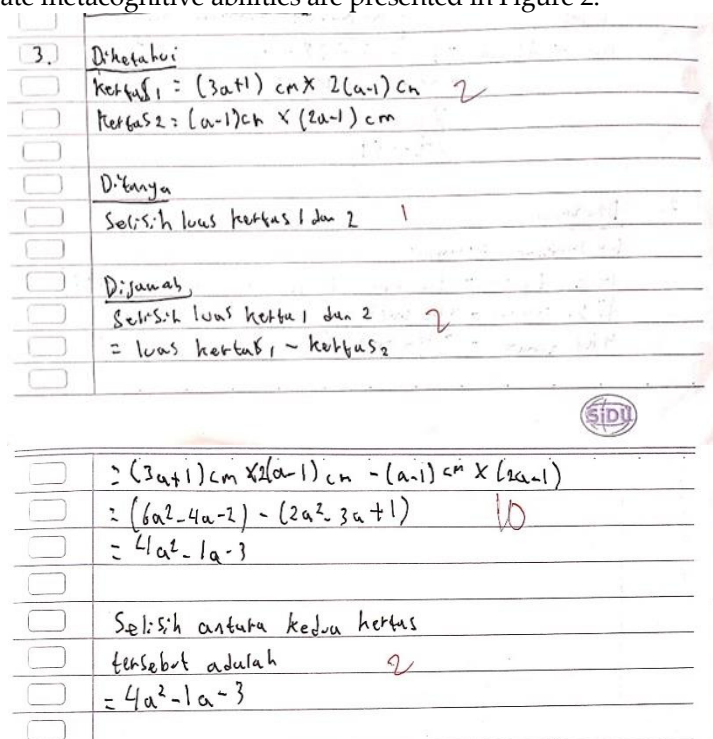 ate metacognitive abilities are presented in Figure 2.
3. Diketahui
Kertas₁ = (3a+1) cm x 2(a-1) cm 2
Kertas 2 = (a-1) cm x (2a-1) cm
Ditanya
Selisih luas kertas 1 dan 2 1
Dijawab
Selisih luas kertas 1 dan 2 2
= luas kertas₁ - kertas₂
SiDU
= (3a+1) cm x 2(a-1) cm - (a-1) cm x (2a-1)
= (6a²-4a-2) - (2a²-3a+1) 10
= 4a²-1a-3
Selisih antara kedua kertas
tersebut adalah 2
= 4a²-1a-3